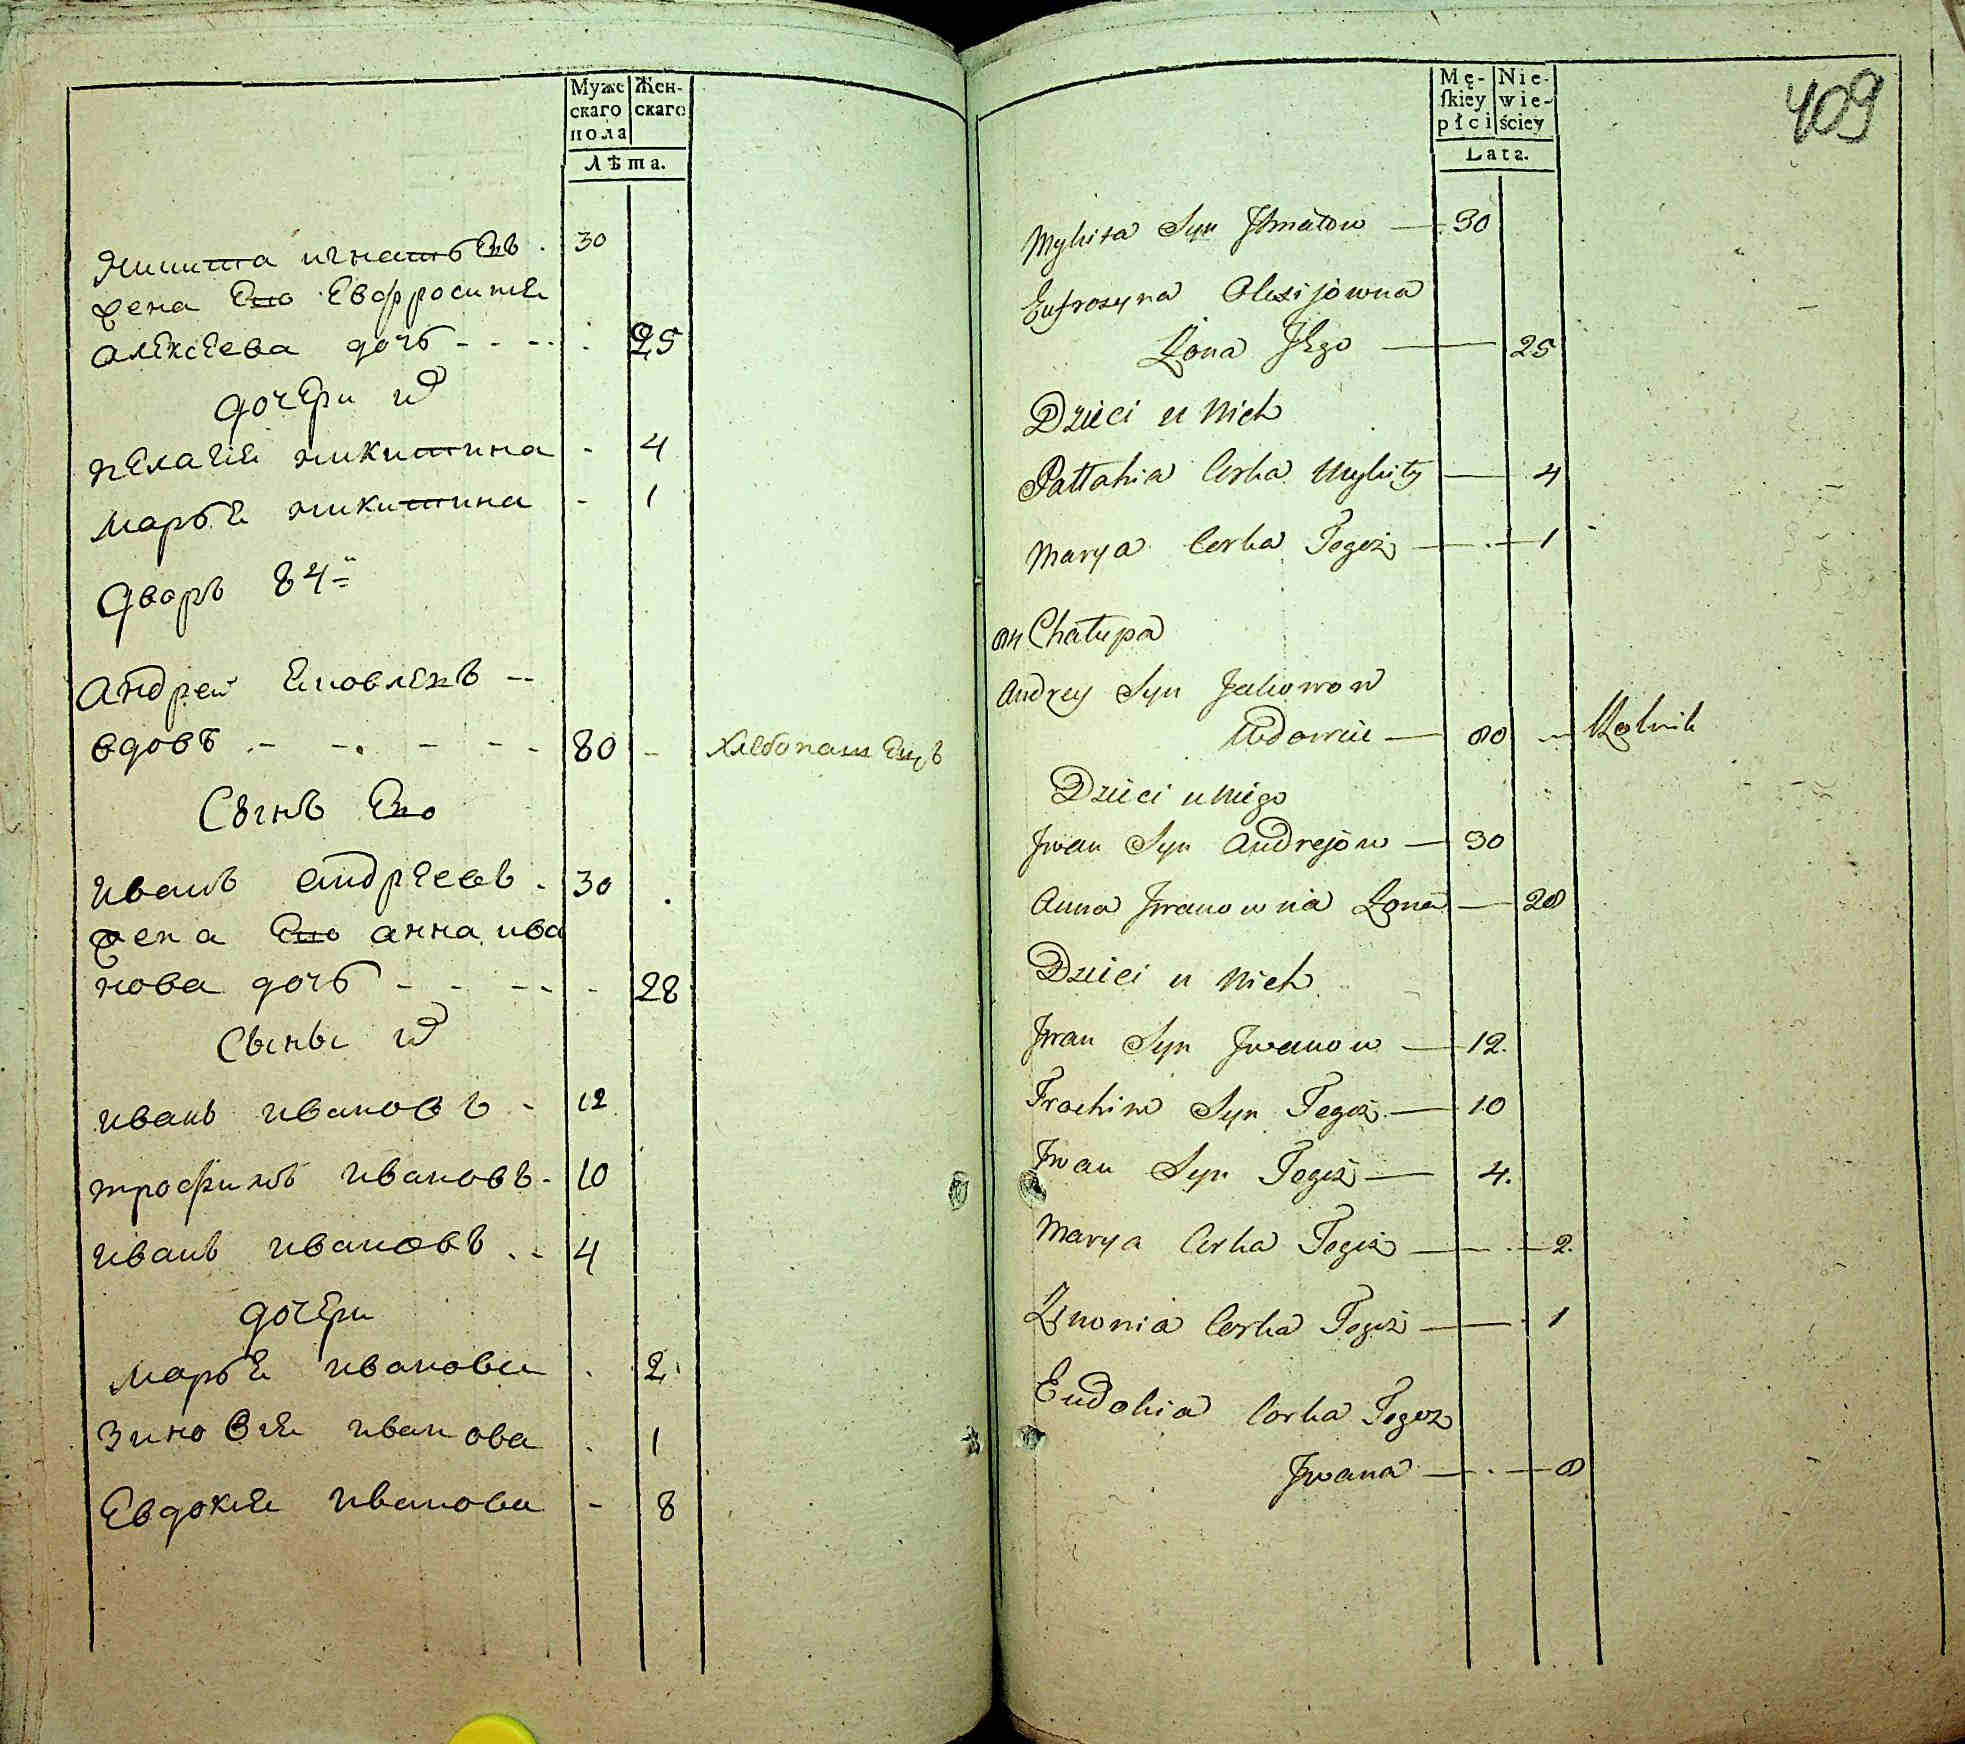 Муже
скаго
пола
Жен-
скаго
Лѣта.
Никита игнатьевъ . 30
жена Его Евфросинія
алексеева дочь - - - - . 25
дочери ихъ
пелагія никитина - 4
марья никитина - 1
дворъ 84й
андрей яковлевъ --
вдовъ .- -. - - - 80 - хлебопашецъ
Сынъ Его
иванъ андреевъ . 30 .
жена Его анна ива
нова дочь - - - - - 28
Сыны ихъ
иванъ ивановъ - 12
трофимъ ивановъ - 10
иванъ ивановъ . - 4
дочери
марья иванова . 2
зиновия иванова . 1
Евдокия иванова - 8
409
Mę-
skiey
płci
Nie-
wie-
ściey
Lata.
Mykita Syn Ihnatow — 30
Eufrozyna Olexijowna
Żona Jego — 25
Dzieci u Nich
Pallahia Corka Mykity — 4
Marya Corka Tegoż — . — 1
84 Chałupa
Andrey Syn Jakowow
Wdowiec — 80 — Rolnik
Dzieci u Niego
Jwan Syn Andrejow — 30
Anna Jwanowna Żona — 28
Dzieci u Nich
Jwan Syn Jwanow — 12.
Trochim Syn Tegoż — 10
Jwan Syn Tegoż — 4.
Marya Corka Tegoż — . — 2.
Zinowia Corka Tegoż — . 1
Eudokia Corka Tegoż
Jwana — . — 8